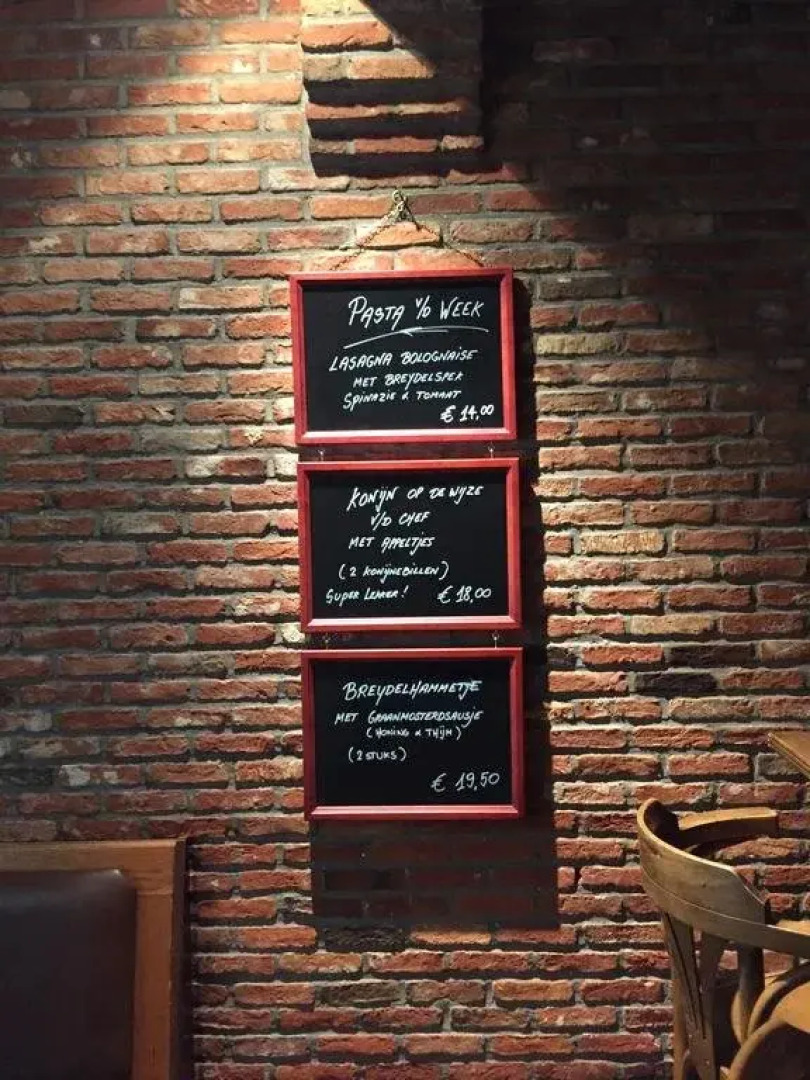 PASTA V/D WEEK
LASAGNA BOLOGNAISE
MET BREYDELSPEK
SPINAZIE & TOMAAT
€ 14,00
KONIJN OP DE WIJZE
V/D CHEF
MET APPELTJES
(2 KONIJNEBILLEN)
SUPER LEKKER! € 18,00
BREYDELHAMMETJE
MET GRAANMOSTERDSAUSJE
(HONING & THIJM)
(2 STUKS)
€ 19,50